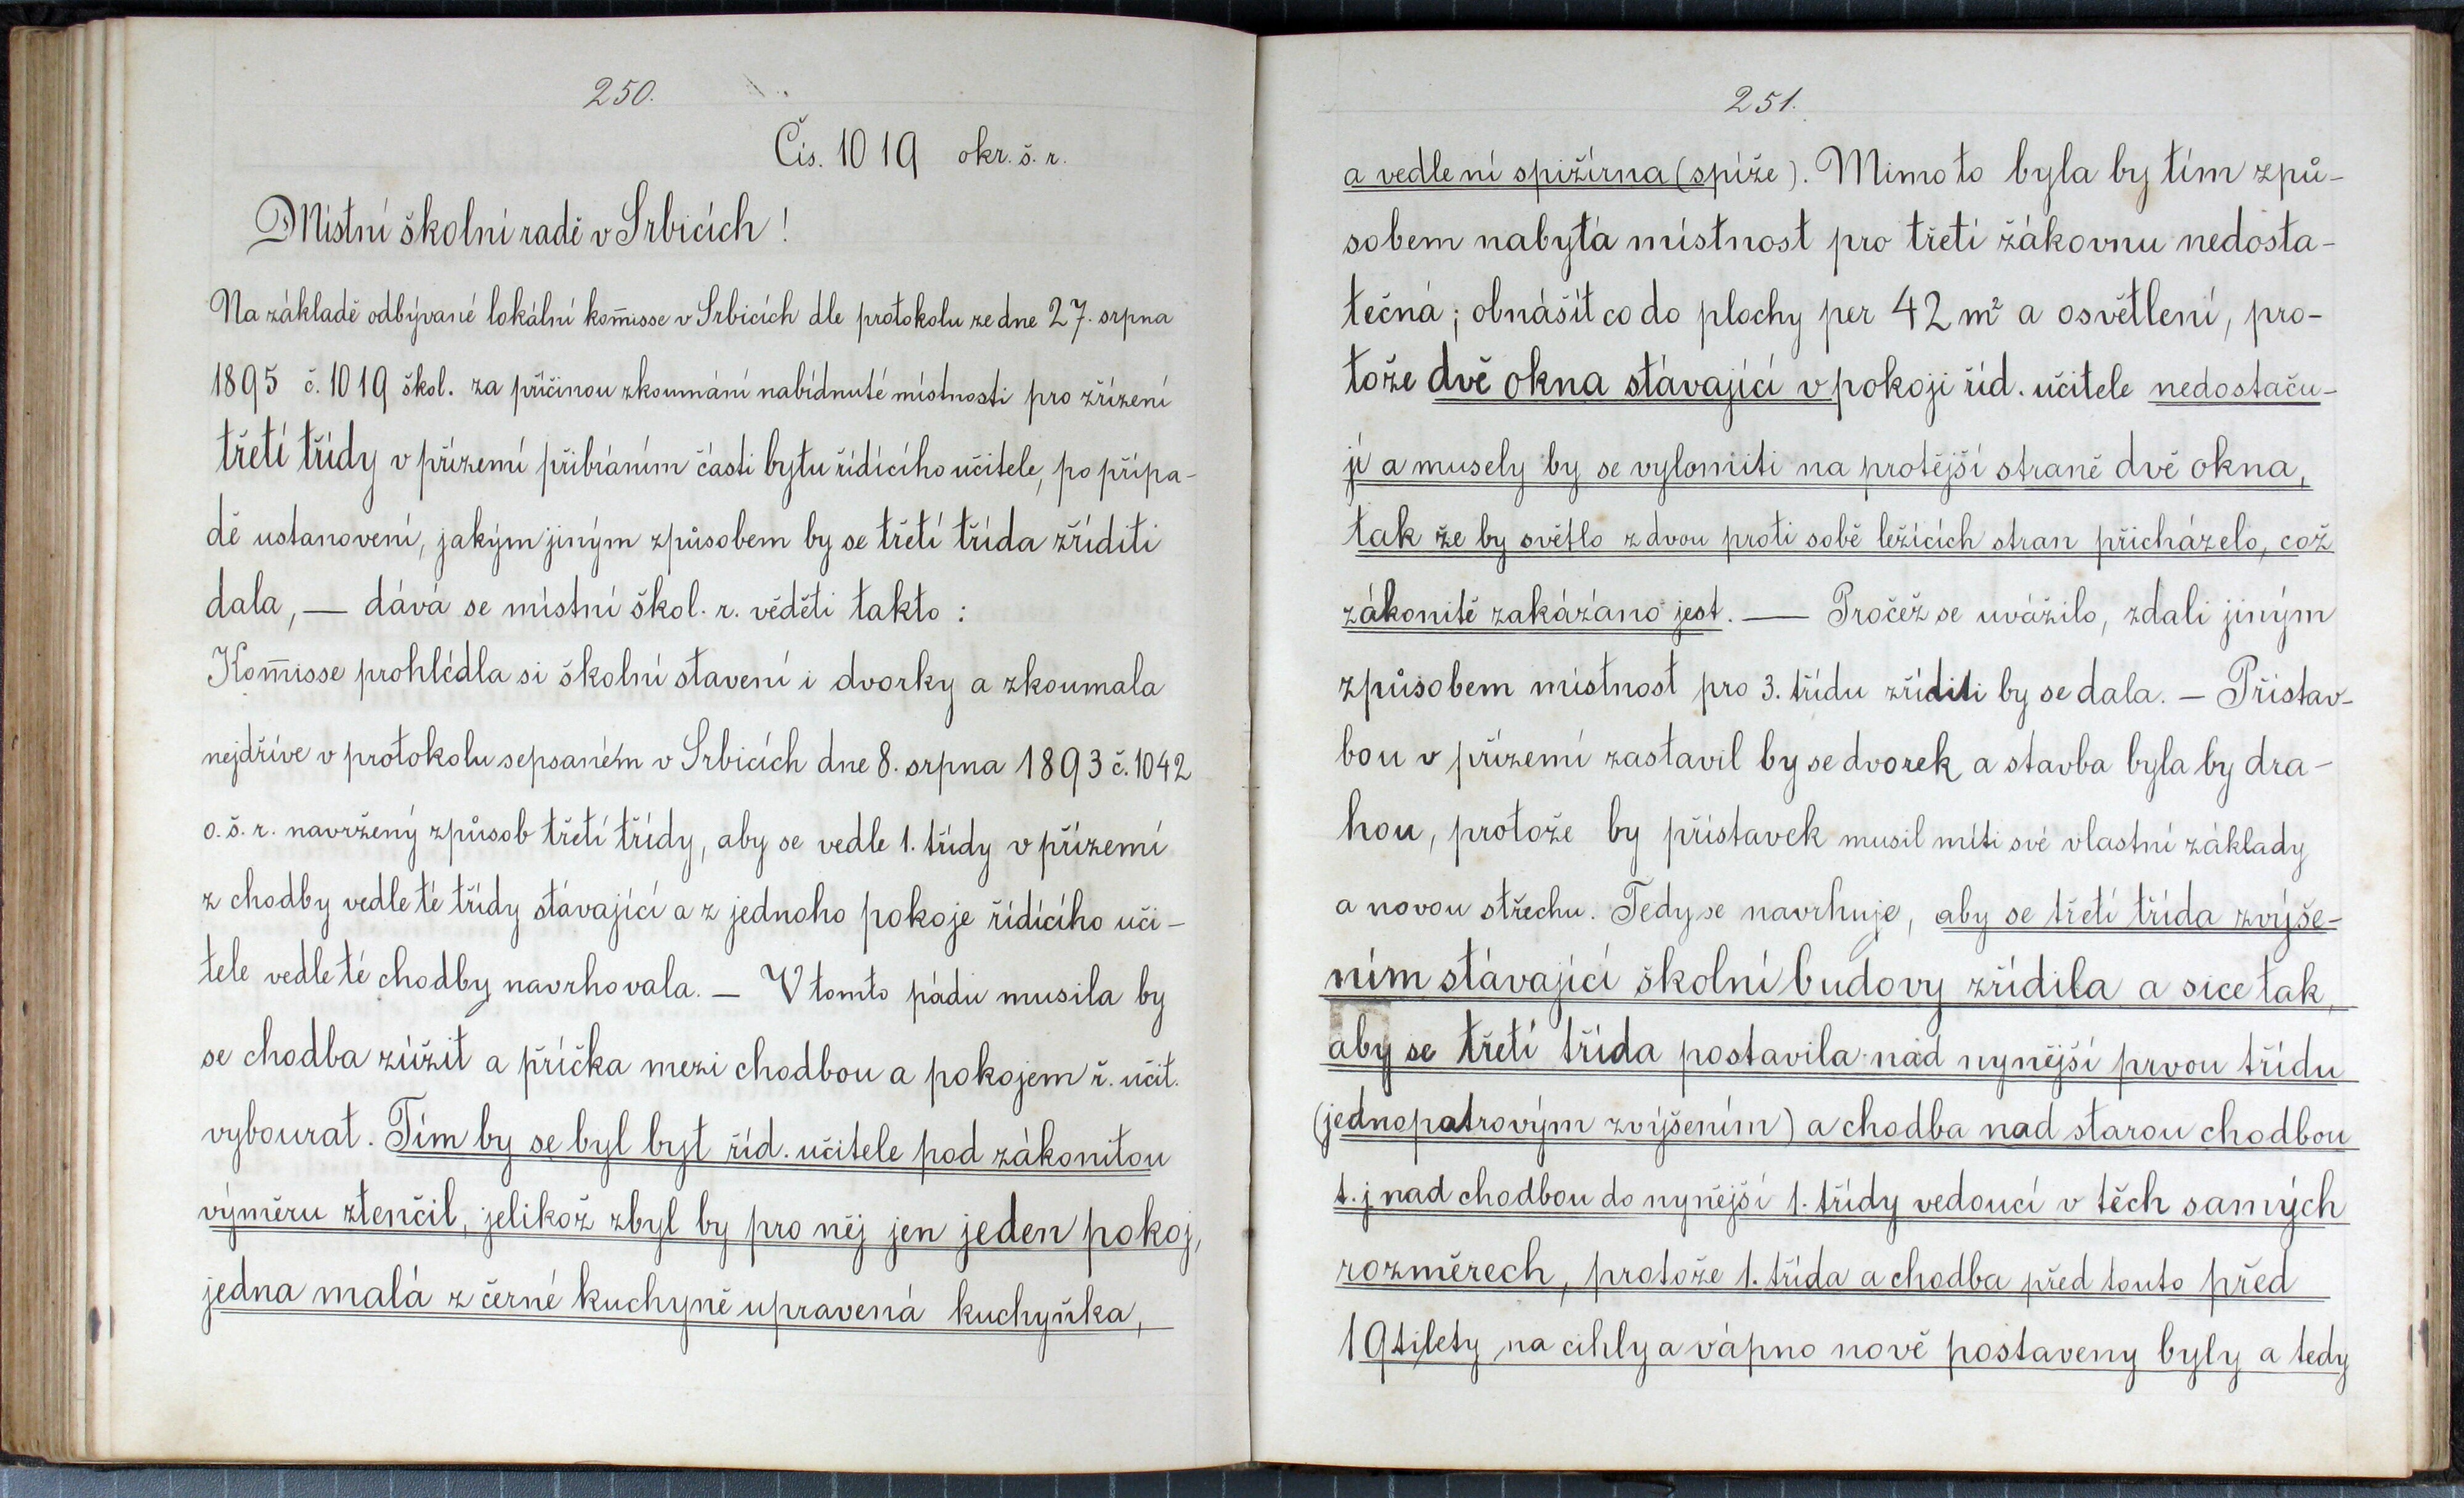 250.
Čís. 1019 okr. š. r.
Místní školní radě v Srbicích!
Na základě odbývané lokální kom̅isse v Srbicích dle protokolu ze dne 27. srpna
1895 č. 1019 škol. za příčinou zkoumání nabídnuté místnosti pro zřízení
třetí třídy v přízemí přibráním části bytu řídícího učitele, po přípa-
dě ustanovení, jakým jiným způsobem by se třetí třída zříditi
dala, — dává se místní škol. r. věděti takto:
Kom̅isse prohlédla si školní stavení i dvorky a zkoumala
nejdříve v protokolu sepsaném v Srbicích dne 8. srpna 1893 č. 1042
o. š. r. navržený způsob třetí třídy, aby se vedle 1. třídy v přízemí
z chodby vedle té třídy stávající a z jednoho pokoje řídícího uči-
tele vedle té chodby navrhovala. — V tomto pádu musila by
se chodba zúžit a příčka mezi chodbou a pokojem ř. učit.
vybourat. Tím by se byl byt říd. učitele pod zákonitou
výměru ztenčil, jelikož zbyl by pro něj jen jeden pokoj,
jedna malá z černé kuchyně upravená kuchyňka,
251.
a vedle ní spižírna (spíže). Mimo to byla by tím způ-
sobem nabytá místnost pro třetí žákovnu nedosta-
tečná; obnášíť co do plochy per 42 m² a osvětlení, pro-
tože dvě okna stávající v pokoji říd. učitele nedostaču-
jí a musely by se vylomiti na protější straně dvě okna,
tak že by světlo z dvou proti sobě ležících stran přicházelo, což
zákonitě zakázáno jest. — Pročež se uvážilo, zdali jiným
způsobem místnost pro 3. třídu zříditi by se dala. — Přístav-
bou v přízemí zastavil by se dvorek a stavba byla by dra-
hou, protože by přístavek musil míti své vlastní základy
a novou střechu. Tedy se navrhuje, aby se třetí třída zvýše-
ním stávající školní budovy zřídila a sice tak,
aby se třetí třída postavila nad nynější prvou třídu
(jednopatrovým zvýšením) a chodba nad starou chodbou
t. j. nad chodbou do nynější 1. třídy vedoucí v těch samých
rozměrech, protože 1. třída a chodba před touto před
19ti lety na cihly a vápno nově postaveny byly a tedy